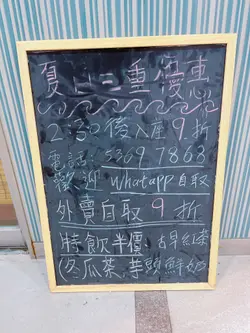 夏日三重優惠
2:30後入座9折
電話:5369 7863
歡迎 whatapp 自取
外賣自取 9 折
特飲半價:古早紅茶
(冬瓜茶,芋頭鮮奶